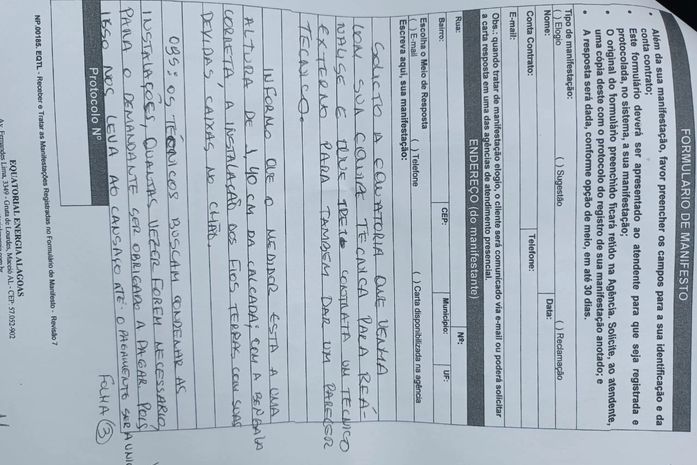 FORMULÁRIO DE MANIFESTO
• Além da sua manifestação, favor preencher os campos para a sua identificação e da
conta contrato;
• Este formulário deverá ser apresentado ao atendente para que seja registrada e
protocolada, no sistema, a sua manifestação;
• O original do formulário preenchido ficará retido na Agência. Solicite, ao atendente,
uma cópia deste com o protocolo do registro de sua manifestação anotado; e
• A resposta será dada, conforme opção de meio, em até 30 dias.
Tipo de manifestação:
( ) Elogio ( ) Sugestão ( ) Reclamação
Nome: Data:
Conta Contrato: Telefone:
E-mail:
Obs.: quando tratar de manifestação elogio, o cliente será comunicado via e-mail ou poderá solicitar
a carta resposta em uma das agências de atendimento presencial.
ENDEREÇO (do manifestante)
Rua: Nº:
Bairro: CEP: Município: UF:
Escolha o Meio de Resposta
( ) E-mail ( ) Telefone ( ) Carta disponibilizada na agência
Escreva aqui, sua manifestação:
SOLICITO A QUE VENHA
COM SUA EQUIPE TÉCNICA PARA REA-
NALISE E QUE CONTRATA UM TECNICO
EXTERNO PARA TAMBEM DAR UM PARECER
TECNICO.
INFORMO QUE O MEDIDOR ESTA A UMA
ALTURA DE 1,40 CM DA CALCADA; COM A BENGALA
CORRETA, A INSTALAÇÃO DOS FIOS TERRAS COM SUAS
DEVIDAS CAIXAS NO CHÃO.
OBS: OS TECNICOS BUSCAM CONDENAR AS
INSTALAÇÕES, QUANTAS VEZER FOREM NECESSARIO,
PARA O DEMANDANTE SER OBRIGADO A PAGAR POIS
ISSO NOS LEVA AO CANSAÇO ATÉ O PAGAMENTO SER A UNIC
FOLHA 3
Protocolo Nº
NP.00185. EQTL - Receber e Tratar as Manifestações Registradas no Formulário de Manifesto - Revisão 7
EQUATORIAL ENERGIA ALAGOAS
Av. Fernandes Lima, 3349 - Gruta de Lourdes, Maceió AL - CEP 57.052-902